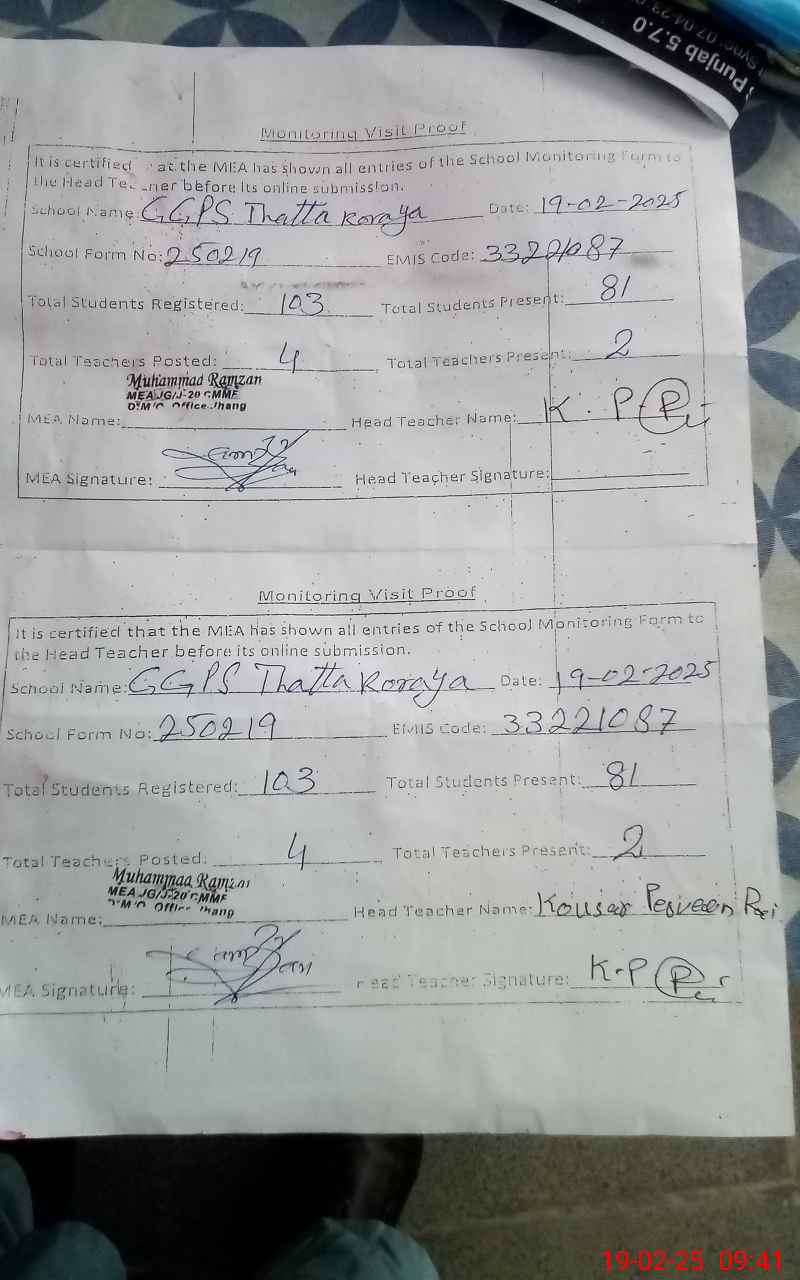 Punjab 5.7.0
Monitoring Visit Proof
It is certified at the MEA has shown all entries of the School Monitoring Form to
the Head before its online submission.
School Name: GGPS Thatta Koraya Date: 19-02-2025
School Form No: 250219 EMIS Code: 33221087
Total Students Registered: 103 Total Students Present: 81
Total Teachers Posted: 4 Total Teachers Present: 2
Muhammad Ramzan
MEA JG/J-20 CMMF
Office Jhang
MEA Name: Head Teacher Name: K.P
MEA Signature: Head Teacher Signature:
Monitoring Visit Proof
It is certified that the MEA has shown all entries of the School Monitoring Form to
the Head Teacher before its online submission.
School Name: GGPS Thatta Koraya Date: 19-02-2025
School Form No: 250219 EMIS Code: 33221087
Total Students Registered: 103 Total Students Present: 81
Total Teachers Posted: 4 Total Teachers Present: 2
Muhammad Ramzan
MEA JG/J-20 CMMF
Office Jhang
MEA Name: Head Teacher Name: Kousar Perveen
MEA Signature: Head Teacher Signature: K.P
19-02-25 09:41